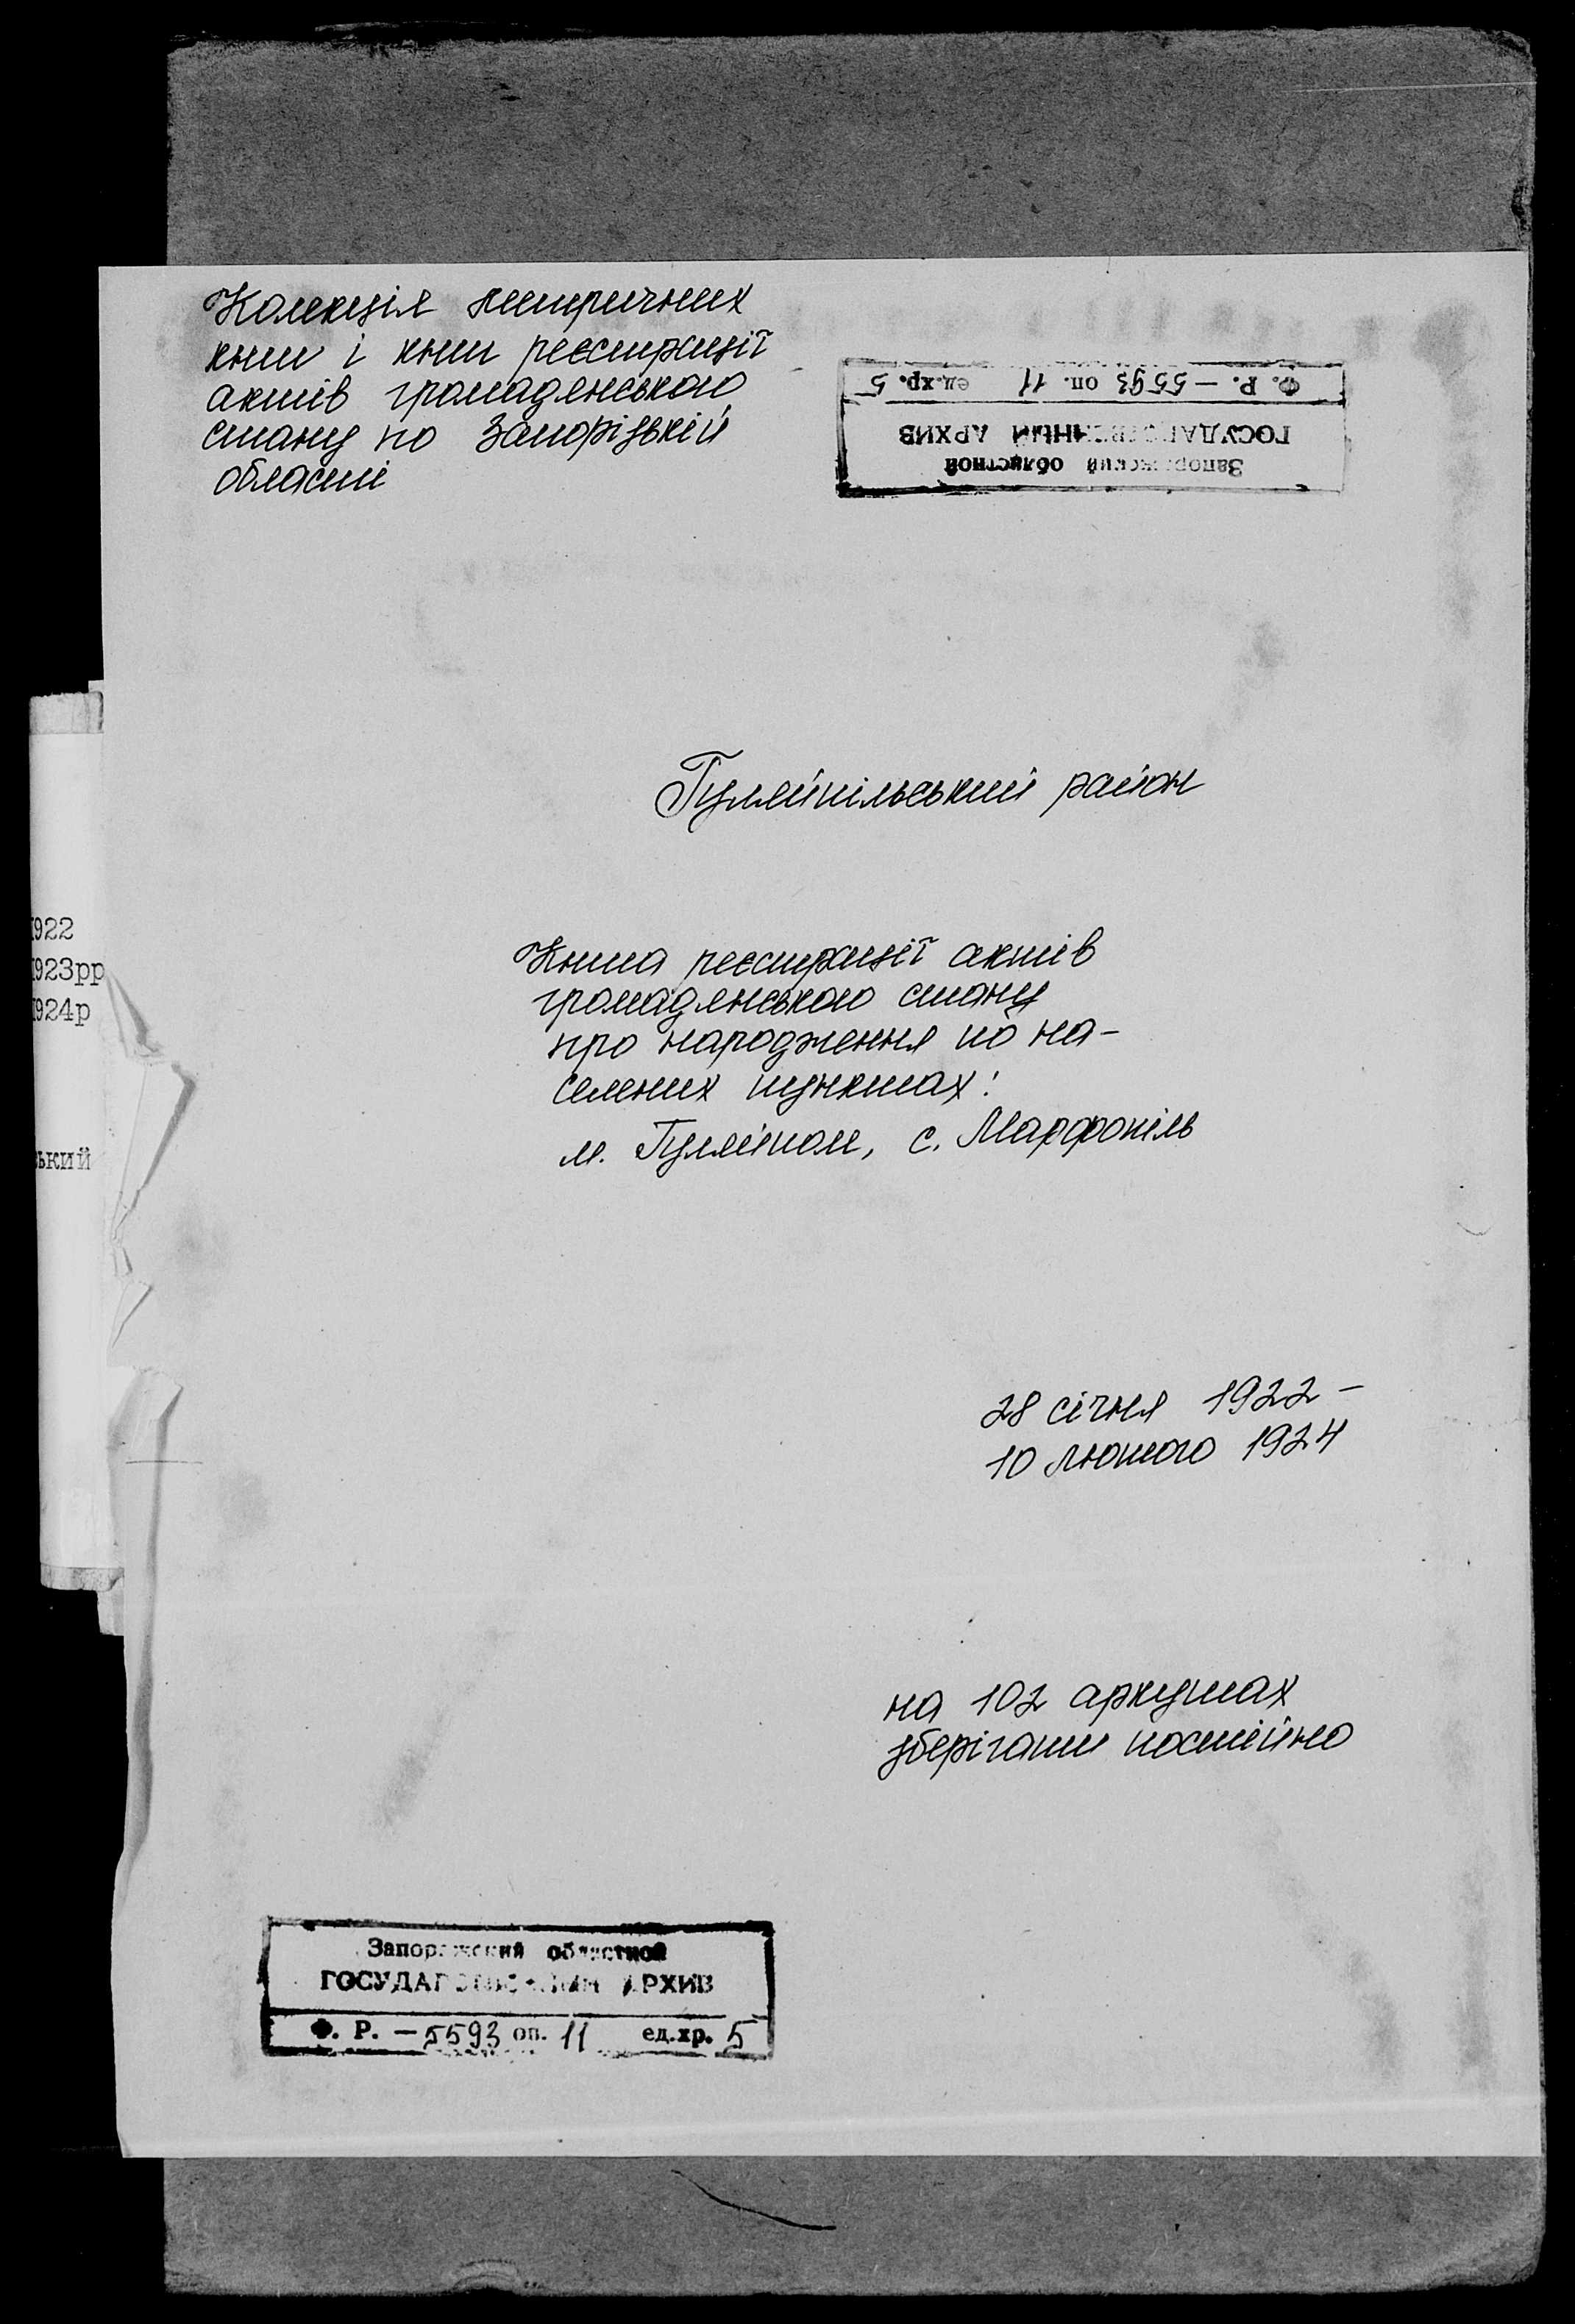 Колекція метричних
книг і книг реєстрації
актів громадянського
стану по Запорізькій
області
Ф. Р. — 5593 оп. 11 ед.хр. 5
ГОСУДАРСТВЕННЫЙ АРХИВ
Запорожский областной
Гуляйпільський район
1922
1923рр
1924р
ський
Книга реєстрації актів
громадянського стану
про народження по на-
селених пунктах:
м. Гуляйполе, с. Марфопіль
28 січня 1922 –
10 лютого 1924
на 102 аркушах
зберігати постійно
Запорожский областной
ГОСУДАРСТВЕННЫЙ АРХИВ
Ф. Р. — 5593 оп. 11 ед.хр. 5